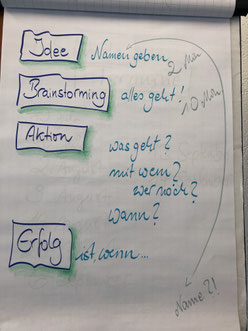 Idee Namen geben 2 Min
Brainstorming alles geht! 10 Min
Aktion
was geht?
mit wem?
wer noch?
wann?
Erfolg ist, wenn...
Name?!